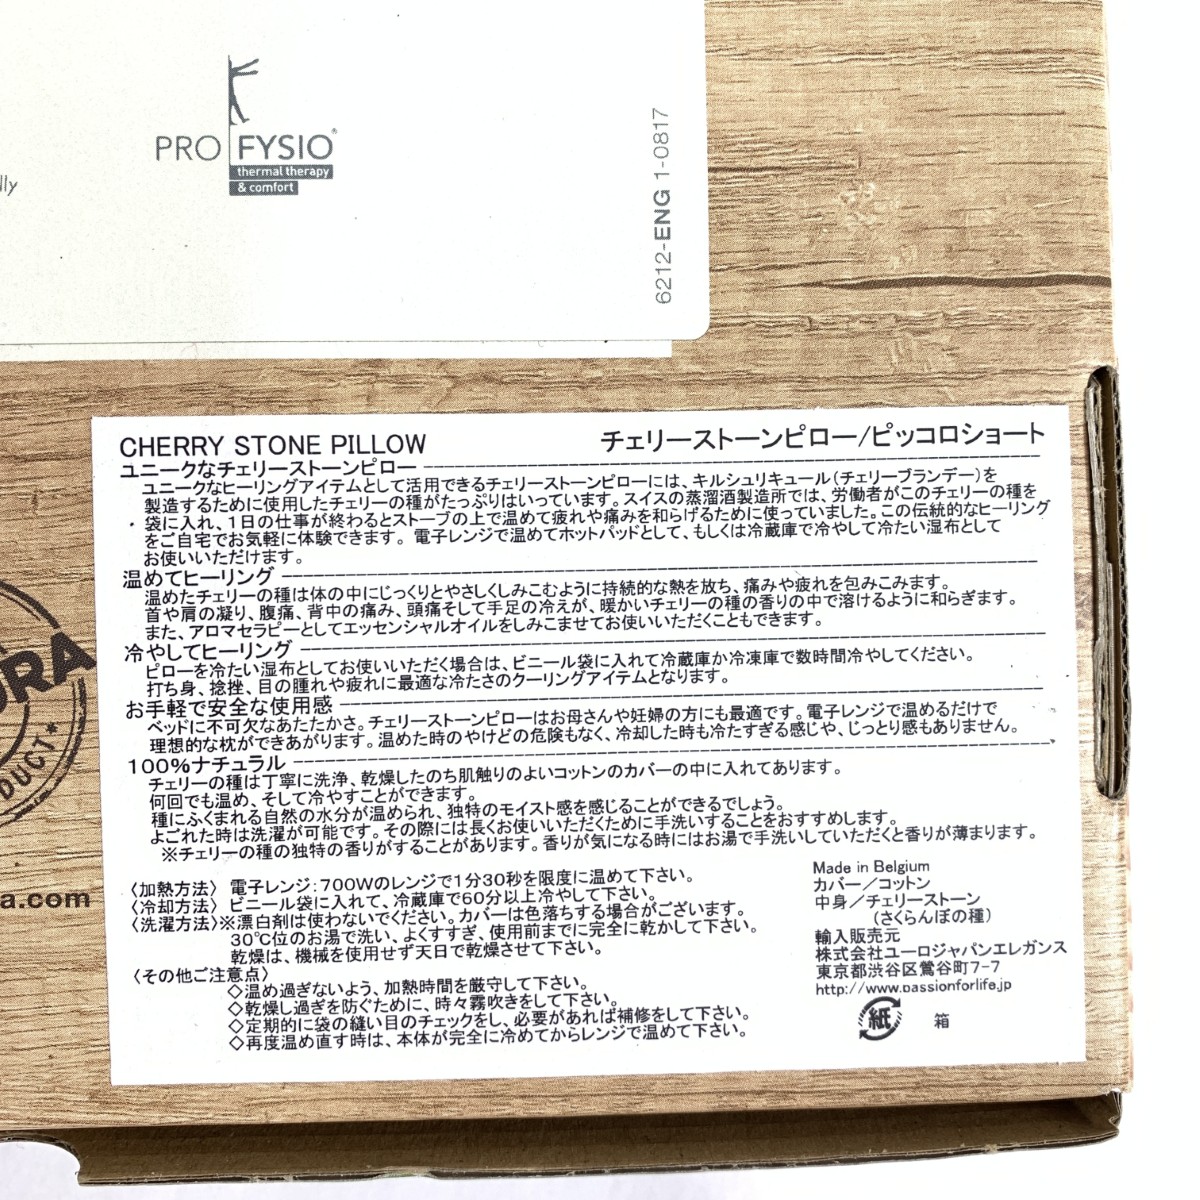 lly
PRO FYSIO®
thermal therapy
& comfort
6212-ENG 1-0817
CHERRY STONE PILLOW
チェリーストーンピロー/ピッコロショート
ユニークなチェリーストーンピロー
ユニークなヒーリングアイテムとして活用できるチェリーストーンピローには、キルシュリキュール(チェリーブランデー)を
製造するために使用したチェリーの種がたっぷりはいっています。スイスの蒸溜酒製造所では、労働者がこのチェリーの種を
袋に入れ、1日の仕事が終わるとストーブの上で温めて疲れや痛みを和らげるために使っていました。この伝統的なヒーリング
をご自宅でお気軽に体験できます。電子レンジで温めてホットパッドとして、もしくは冷蔵庫で冷やして冷たい湿布として
お使いいただけます。
温めてヒーリング
温めたチェリーの種は体の中にじっくりとやさしくしみこむように持続的な熱を放ち、痛みや疲れを包みこみます。
首や肩の凝り、腹痛、背中の痛み、頭痛そして手足の冷えが、暖かいチェリーの種の香りの中で溶けるように和らぎます。
また、アロマセラピーとしてエッセンシャルオイルをしみこませてお使いいただくこともできます。
冷やしてヒーリング
ピローを冷たい湿布としてお使いいただく場合は、ビニール袋に入れて冷蔵庫か冷凍庫で数時間冷やしてください。
打ち身、捻挫、目の腫れや疲れに最適な冷たさのクーリングアイテムとなります。
お手軽で安全な使用感
ベッドに不可欠なあたたかさ。チェリーストーンピローはお母さんや妊婦の方にも最適です。電子レンジで温めるだけで
理想的な枕ができあがります。温めた時のやけどの危険もなく、冷却した時も冷たすぎる感じや、じっとり感もありません。
100%ナチュラル
チェリーの種は丁寧に洗浄、乾燥したのち肌触りのよいコットンのカバーの中に入れてあります。
何回でも温め、そして冷やすことができます。
種にふくまれる自然の水分が温められ、独特のモイスト感を感じることができるでしょう。
よごれた時は洗濯が可能です。その際には長くお使いいただくために手洗いすることをおすすめします。
※チェリーの種の独特の香りがすることがあります。香りが気になる時にはお湯で手洗いしていただくと香りが薄まります。
〈加熱方法〉 電子レンジ:700Wのレンジで1分30秒を限度に温めて下さい。
〈冷却方法〉 ビニール袋に入れて、冷蔵庫で60分以上冷やして下さい。
〈洗濯方法〉※漂白剤は使わないでください。カバーは色落ちする場合がございます。
30℃位のお湯で洗い、よくすすぎ、使用前までに完全に乾かして下さい。
乾燥は、機械を使用せず天日で乾燥させて下さい。
〈その他ご注意点〉
◇温め過ぎないよう、加熱時間を厳守して下さい。
◇乾燥し過ぎを防ぐために、時々霧吹きをして下さい。
◇定期的に袋の縫い目のチェックをし、必要があれば補修をして下さい。
◇再度温め直す時は、本体が完全に冷めてからレンジで温めて下さい。
Made in Belgium
カバー/コットン
中身/チェリーストーン
(さくらんぼの種)
輸入販売元
株式会社ユーロジャパンエレガンス
東京都渋谷区鶯谷町7-7
http://www.passionforlife.jp
紙 箱
URA
DUCT*
a.com